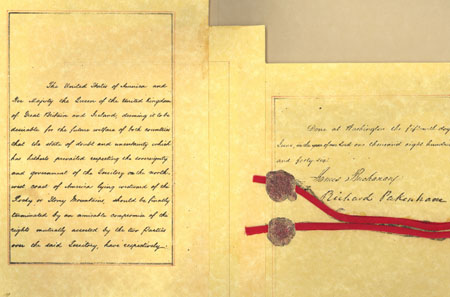 The United States of America and
Her Majesty the Queen of the United Kingdom
of Great Britain and Ireland, deeming it to be
desirable for the future welfare of both countries
that the state of doubt and uncertainty which
has hitherto prevailed respecting the sovereignty
and government of the Territory on the north-
west coast of America lying westward of the
Rocky or Stony Mountains, should be finally
terminated by an amicable compromise of the
rights mutually asserted by the two Parties
over the said Territory, have respectively
Done at Washington the fifteenth day
June, in the year of our Lord one thousand eight hundred
and forty-six.
James Buchanan
Richard Pakenham